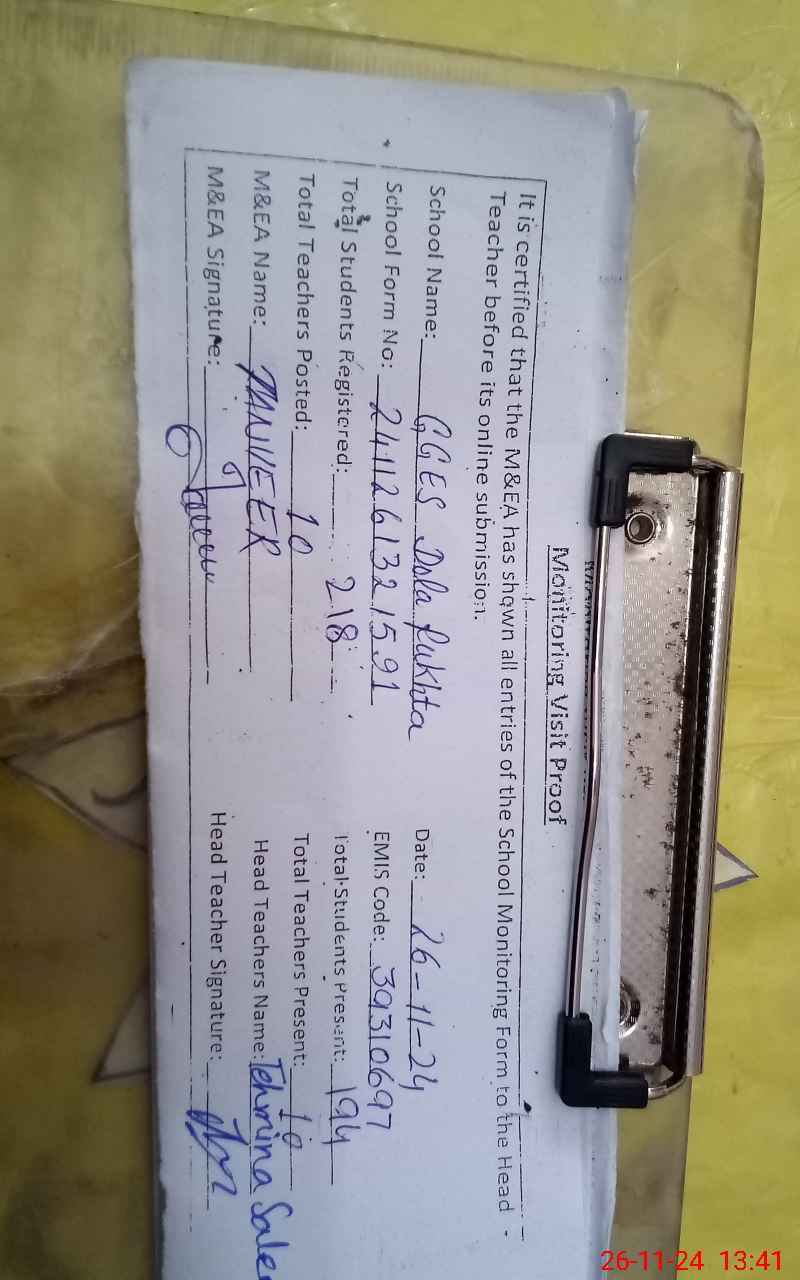 Monitoring Visit Proof
It is certified that the M&EA has shown all entries of the School Monitoring Form to the Head
Teacher before its online submission.
School Name: GGES Dula Pukhta Date: 26-11-24
School Form No: 2411261321591 EMIS Code: 39310697
Total Students Registered: 218 Total Students Present: 194
Total Teachers Posted: 10 Total Teachers Present: 10
M&EA Name: TANVEER Head Teachers Name: Tehmina
M&EA Signature: Head Teacher Signature:
26-11-24 13:41